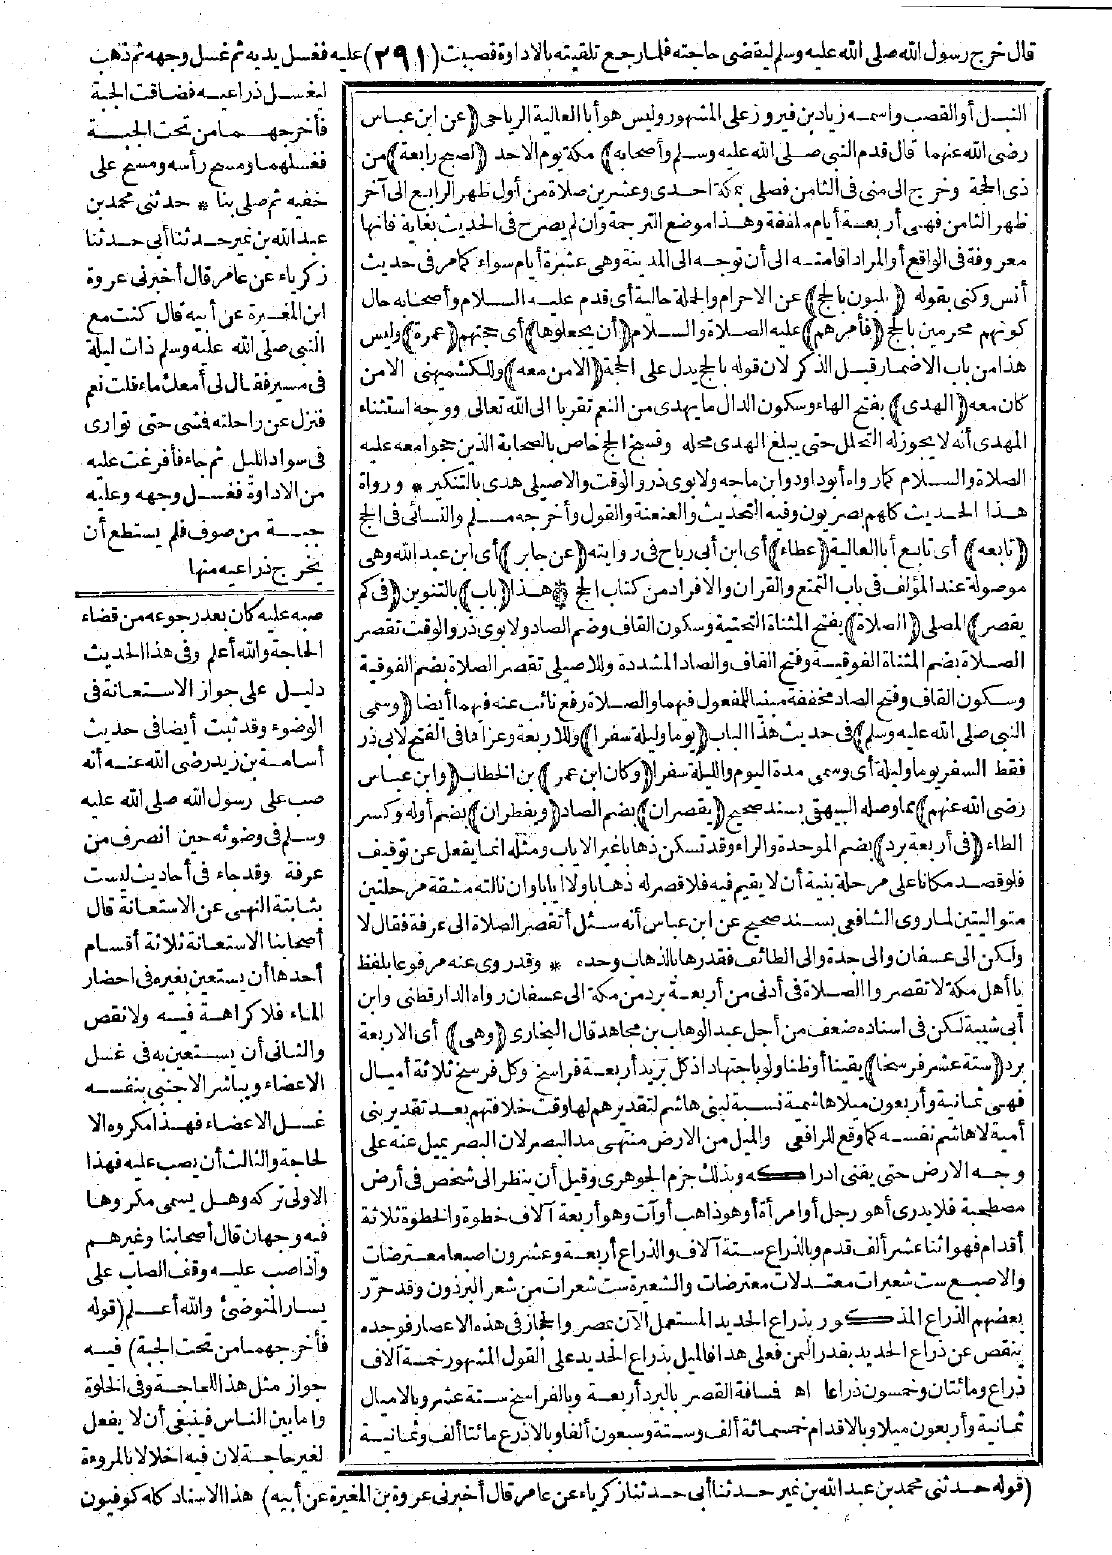 قال خرج رسول الله صلى الله عليه وسلم ليقضى حاجته فلما رجع تلقيته بالاداوة فصببت (٢٩١) عليه فغسل يديه ثم غسل وجهه ثم ذهب
ليغسل ذراعيه فضاقت الجبة
فأخرجهما من تحت الجبة
فغسلهما ومسح رأسه ومسح على
خفيه ثم صلى بنا * حدثنى محمد بن
عبد الله بن نمير حدثنا أبى حدثنا
زكرياء عن عامر قال أخبرنى عروة
ابن المغيرة عن أبيه قال كنت مع
النبى صلى الله عليه وسلم ذات ليلة
فى مسير فقال لى أمعك ماء قلت نعم
فنزل عن راحلته فمشى حتى توارى
فى سواد الليل ثم جاء فأفرغت عليه
من الاداوة فغسل وجهه وعليه
جبة من صوف فلم يستطع أن
يخرج ذراعيه منها
صبه عليه كان بعد رجوعه من قضاء
الحاجة والله أعلم وفى هذا الحديث
دليل على جواز الاستعانة فى
الوضوء وقد ثبت أيضا فى حديث
أسامة بن زيد رضى الله عنه أنه
صب على رسول الله صلى الله عليه
وسلم فى وضوئه حين انصرف من
عرفة وقد جاء فى أحاديث ليست
بثابتة النهى عن الاستعانة قال
أصحابنا الاستعانة ثلاثة أقسام
أحدها أن يستعين بغيره فى احضار
الماء فلا كراهة فيه ولا نقص
والثانى أن يستعين به فى غسل
الاعضاء ويباشر الاجنبى بنفسه
غسل الاعضاء فهذا مكروه الا
لحاجة والثالث أن يصب عليه فهذا
الاولى تركه وهل يسمى مكروها
فيه وجهان قال أصحابنا وغيرهم
واذا صب عليه وقف الصاب على
يسار المتوضئ والله أعلم (قوله
فأخرجهما من تحت الجبة) فيه
جواز مثل هذا للحاجة وفى الخلوة
واما بين الناس فينبغى أن لا يفعل
لغير حاجة لان فيه اخلالا بالمروءة
النبل أو القصب واسمه زياد بن فيروز على المشهور وليس هو أبا العالية الرياحى (عن ابن عباس
رضى الله عنهما قال قدم النبى صلى الله عليه وسلم وأصحابه) مكة يوم الاحد (لصبح رابعة) من
ذى الحجة وخرج الى منى فى الثامن فصلى بمكة احدى وعشرين صلاة من أول ظهر الرابع الى آخر
ظهر الثامن فهى أربعة أيام ملفقة وهذا موضع الترجمة وان لم يصرح فى الحديث بغاية فانها
معروفة فى الواقع أو المراد اقامته الى أن توجه الى المدينة وهى عشرة أيام سواء كما مر فى حديث
أنس وكنى بقوله (يلبون بالحج) عن الاحرام والجملة حالية أى قدم عليه السلام وأصحابه حال
كونهم محرمين بالحج (فأمرهم) عليه الصلاة والسلام (أن يجعلوها) أى حجتهم (عمرة) وليس
هذا من باب الاضمار قبل الذكر لان قوله بالحج يدل على الحجة (الا من معه) وللكشميهنى الا من
كان معه (الهدى) بفتح الهاء وسكون الدال ما يهدى من النعم تقربا الى الله تعالى ووجه استثناء
المهدى أنه لا يجوز له التحلل حتى يبلغ الهدى محله وفسخ الحج خاص بالصحابة الذين حجوا معه عليه
الصلاة والسلام كما رواه أبو داود وابن ماجه ولابوى ذر والوقت والاصيلى هدى بالتنكير * ورواة
هذا الحديث كلهم بصريون وفيه التحديث والعنعنة والقول وأخرجه مسلم والنسائى فى الحج
(تابعه) أى تابع أبا العالية (عطاء) أى ابن أبى رباح فى روايته (عن جابر) أى ابن عبد الله وهى
موصولة عند المؤلف فى باب التمتع والقران والافراد من كتاب الحج * هذا (باب) بالتنوين (فى كم
يقصر) المصلى (الصلاة) بفتح المثناة التحتية وسكون القاف وضم الصاد ولابوى ذر والوقت تقصر
الصلاة بضم المثناة الفوقية وفتح القاف والصاد المشددة وللاصيلى تقصر الصلاة بضم الفوقية
وسكون القاف وفتح الصاد مخففة مبنيا للمفعول فيهما والصلاة رفع نائب عنه فيهما أيضا (وسمى
النبى صلى الله عليه وسلم) فى حديث هذا الباب (يوما وليلة سفرا) وللاربعة وعزاها فى الفتح لابى ذر
فقط السفر يوما وليلة أى وسمى مدة اليوم والليلة سفرا (وكان ابن عمر) بن الخطاب (وابن عباس
رضى الله عنهم) مما وصله البيهقى بسند صحيح (يقصران) بضم الصاد (ويفطران) بضم أوله وكسر
الطاء (فى أربعة برد) بضم الموحدة والراء وقد تسكن ذهابا غير الاياب ومثله انما يفعل عن توقيف
فلو قصد مكانا على مرحلة بنية أن لا يقيم فيه فلا قصر له ذهابا ولا ايابا وان نالته مشقة مرحلتين
متواليتين لما روى الشافعى بسند صحيح عن ابن عباس أنه سئل أتقصر الصلاة الى عرفة فقال لا
ولكن الى عسفان والى جدة والى الطائف فقدرها بالذهاب وحده * وقد روى عنه مرفوعا بلفظ
يا أهل مكة لا تقصروا الصلاة فى أدنى من أربعة برد من مكة الى عسفان رواه الدارقطنى وابن
أبى شيبة لكن فى اسناده ضعف من أجل عبد الوهاب بن مجاهد قال البخارى (وهى) أى الاربعة
برد (ستة عشر فرسخا) يقينا أو ظنا ولو باجتهاد اذ كل بريد أربعة فراسخ وكل فرسخ ثلاثة أميال
فهى ثمانية وأربعون ميلا هاشمية نسبة لبنى هاشم لتقديرهم لها وقت خلافتهم بعد تقدير بنى
أمية لا هاشم نفسه كما وقع للرافعى والميل من الارض منتهى مد البصر لان البصر يميل عنه على
وجه الارض حتى يفنى ادراكه وبذلك جزم الجوهرى وقيل أن ينظر الى شخص فى أرض
مصطحبة فلا يدرى أهو رجل أو امرأة أو هو ذاهب أو آت وهو أربعة آلاف خطوة والخطوة ثلاثة
أقدام فهو اثنا عشر ألف قدم وبالذراع ستة آلاف والذراع أربعة وعشرون اصبعا معترضات
والاصبع ست شعيرات معتدلات معترضات والشعيرة ست شعرات من شعر البرذون وقد حرر
بعضهم الذراع المذكور بذراع الحديد المستعمل الآن بمصر والحجاز فى هذه الاعصار فوجده
ينقص عن ذراع الحديد بقدر الثمن فعلى هذا فالميل بذراع الحديد على القول المشهور خمسة آلاف
ذراع ومائتان وخمسون ذراعا اه فمسافة القصر بالبرد أربعة وبالفراسخ ستة عشر وبالاميال
ثمانية وأربعون ميلا وبالاقدام خمسمائة ألف وستة وسبعون ألفا وبالاذرع مائتا ألف وثمانية
(قوله حدثنى محمد بن عبد الله بن نمير حدثنا أبى حدثنا زكرياء عن عامر قال أخبرنى عروة بن المغيرة عن أبيه) هذا الاسناد كله كوفيون